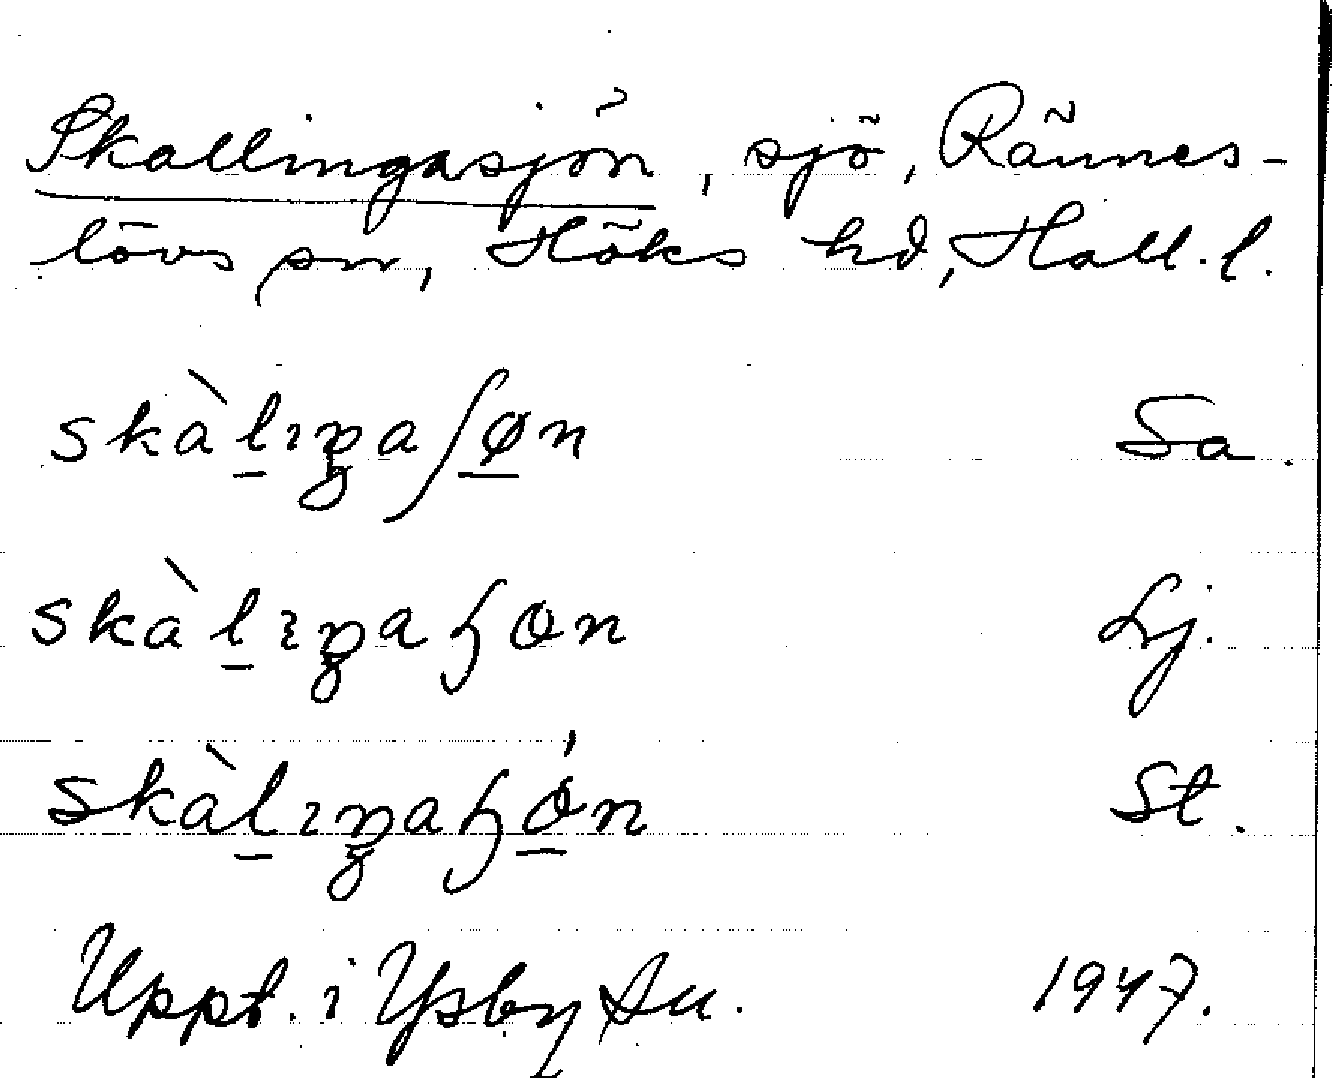 Skallingasjön, sjö, Rännes-
lövs sn, Höks hd, Hall. l.
skàl̲ıŋaʃø̲n Sa.
skàl̲ıŋaɧøn Lj.
skàl̲ıŋaɧǿ̲n St.
Uppt. i Ysby sn. 1947.